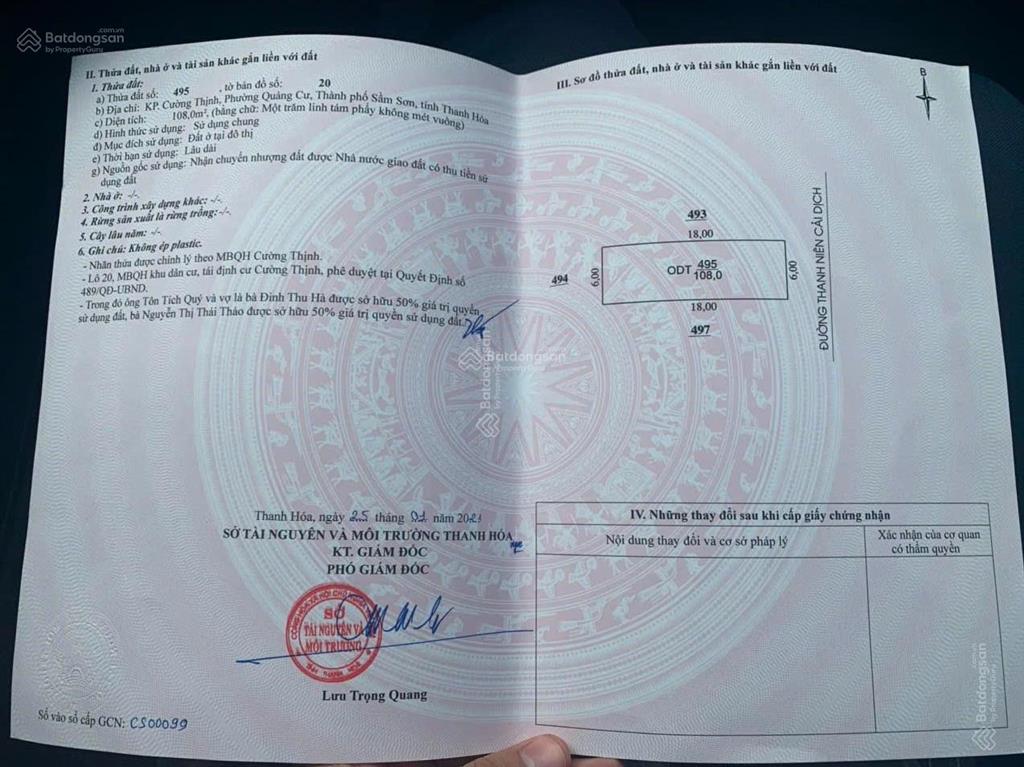 Batdongsan.com.vn
by PropertyGuru
II. Thửa đất, nhà ở và tài sản khác gắn liền với đất
1. Thửa đất:
a) Thửa đất số: 495 , tờ bản đồ số: 20
b) Địa chỉ: KP. Cường Thịnh, Phường Quảng Cư, Thành phố Sầm Sơn, tỉnh Thanh Hóa
c) Diện tích: 108,0m², (bằng chữ: Một trăm linh tám phẩy không mét vuông)
d) Hình thức sử dụng: Sử dụng chung
đ) Mục đích sử dụng: Đất ở tại đô thị
e) Thời hạn sử dụng: Lâu dài
g) Nguồn gốc sử dụng: Nhận chuyển nhượng đất được Nhà nước giao đất có thu tiền sử
dụng đất
2. Nhà ở: -/-.
3. Công trình xây dựng khác: -/-.
4. Rừng sản xuất là rừng trồng:-/-.
5. Cây lâu năm: -/-
6. Ghi chú: Không ép plastic.
- Nhãn thửa được chỉnh lý theo MBQH Cường Thịnh.
- Lô 20, MBQH khu dân cư, tái định cư Cường Thịnh, phê duyệt tại Quyết Định số
489/QĐ-UBND.
- Trong đó ông Tôn Tích Quý và vợ là bà Đinh Thu Hà được sở hữu 50% giá trị quyền
sử dụng đất, bà Nguyễn Thị Thái Thảo được sở hữu 50% giá trị quyền sử dụng đất.
Thanh Hóa, ngày 25 tháng năm
SỞ TÀI NGUYÊN VÀ MÔI TRƯỜNG THANH HÓA
KT. GIÁM ĐỐC
PHÓ GIÁM ĐỐC
SỞ
TÀI NGUYÊN VÀ
MÔI TRƯỜNG
TỈNH THANH HOÁ
Lưu Trọng Quang
Số vào sổ cấp GCN: CS00099
III. Sơ đồ thửa đất, nhà ở và tài sản khác gắn liền với đất
B
493
18,00
494
6,00
ODT 495
108,0
6,00
18,00
497
ĐƯỜNG THANH NIÊN CẢI DỊCH
IV. Những thay đổi sau khi cấp giấy chứng nhận
Nội dung thay đổi và cơ sở pháp lý
Xác nhận của cơ quan
có thẩm quyền
Batdongsan
by PropertyGuru
Batdongsan
by PropertyGuru
Batdongsan.com.vn
by PropertyGuru